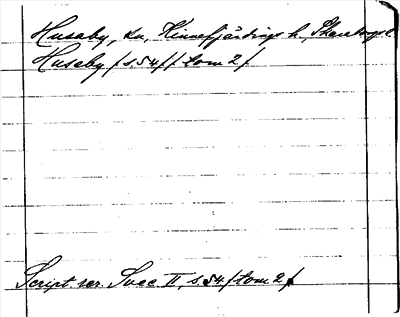 Husaby, sn, Kinnefjärdings h, Skaraborgs l.
Husaby /s.54/ /tom 2/
Script. rer. Svec. II, s. 54. /tom 2/